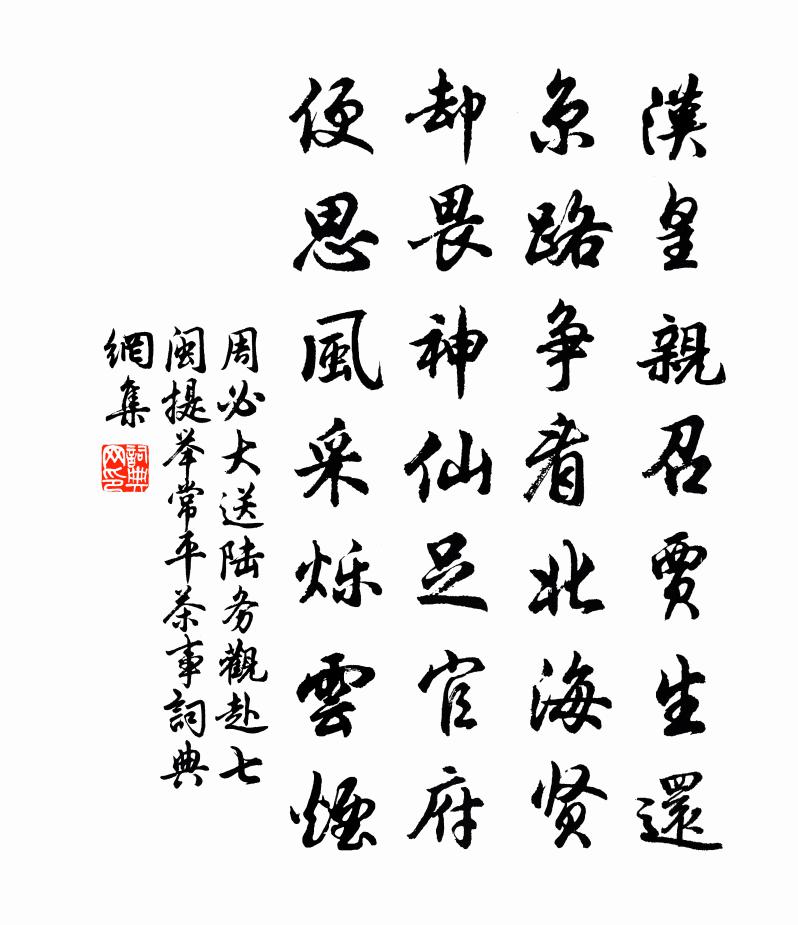 漢皇親召賈生還
京路争看北海贤
却畏神仙足官府
便思風采烁雲煙
周必大送陆务觀赴七
闽提举常平茶事詞典
網集
詞典
网印